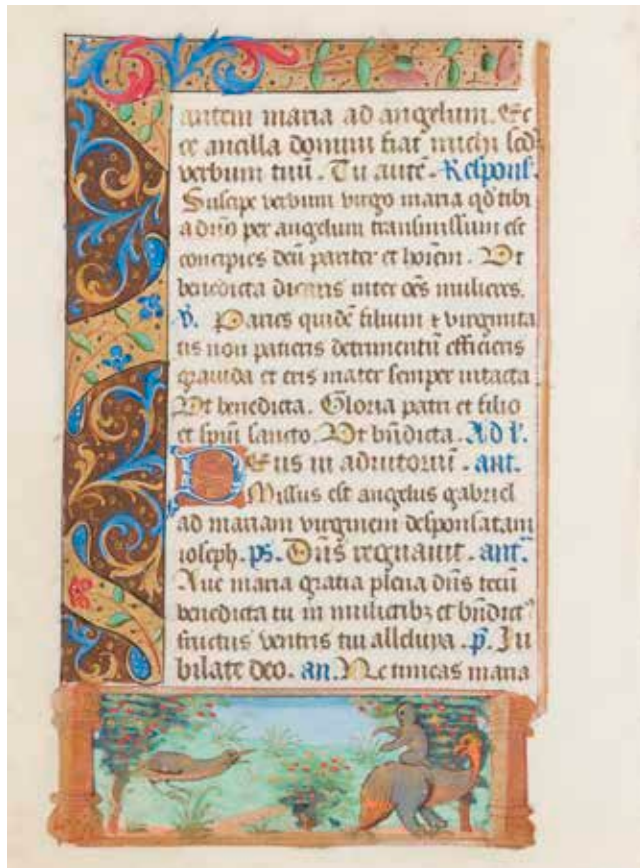 autem maria ad angelum. Ec
ce ancilla domini fiat michi scd̄
verbum tuū. Tu autē. Respons̄.
Suscipe verbum virgo maria qd̄ tibi
a dn̄o per angelum transmissum est
concipies deū pariter et hoīem. Ut
benedicta dicaris inter oēs mulieres.
v̄. Paries quidē filium ⁊ virginita
tis non patieris detrimentū efficieris
gravida et eris mater semper intacta
Ut benedicta. Gloria patri et filio
et spūi sancto. Ut bn̄dicta. Ad l'.
Deus in adiutoriū. ant.
Missus est angelus gabriel
ad mariam virginem desponsatam
ioseph. ps. Dn̄s regnavit. ant̄.
Ave maria gratia plena dn̄s tecū
benedicta tu in mulieribꝫ et bn̄dict⁹
fructus ventris tui alleluya. p̄. Ju
bilate deo. an. Ne timeas maria